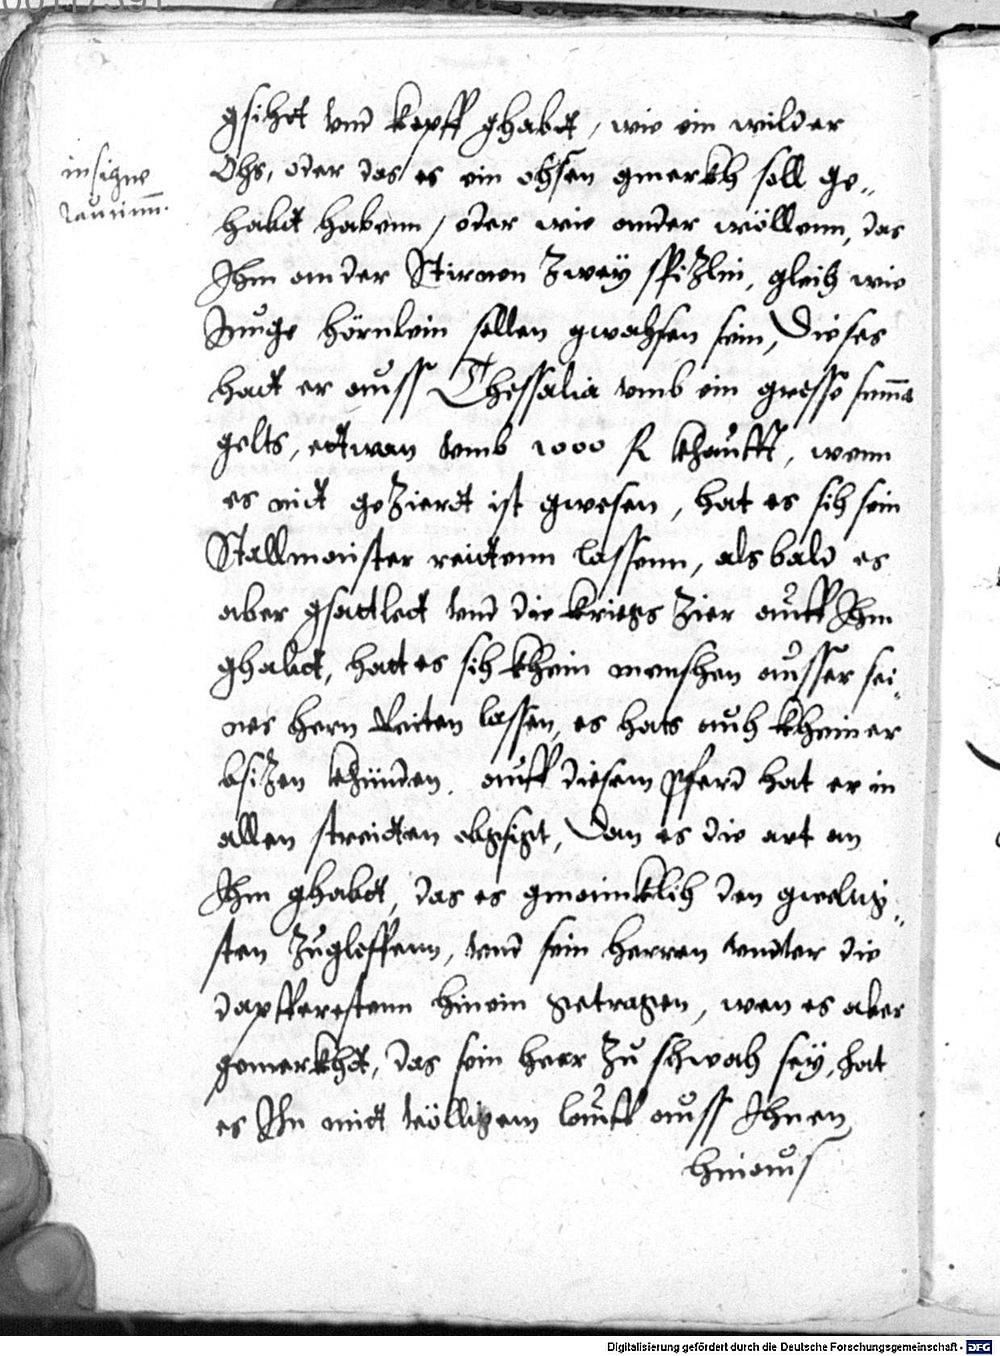 insigne
taurinum.
gsicht vnd kopff ghabt, wie ein wilder
Ochs, oder das es ein ochsen gmerkh soll ge„
habdt habenn, oder wie ander wöllenn, das
Ihm an der Stirnen Zwey spiZlin, gleich wie
Junge hörnlein sollen gwachsen sein, Dieses
hadt er auss Thessalia vmb ein grosse sum̄a
gelts, edtwan vmb 1000 fl khaufft, wenn
es nidt geZierdt ist gwesen, hat es sich sein
Stallmaister reidtenn lassenn, als bald es
aber gsadtledt vnd die kriegs Zier auff Ihm
ghabdt, hadt es sich khein menschen ausser sei„
nes hern Reiten lassen, es hats auch kheiner
bsiZen khünden. auff diesem Pferd hat er in
allen streidten obgsigt, Dan es die art an
Ihm ghabdt, das es gmainklich den gwaltig„
sten Zugloffenn, vnd sein herren vndter die
dapfferestenn hinein getragen, wen es aber
gemerkhdt, das sein heer Zu schwach sey, hat
es Ihn midt völligem lauff auss Ihnen
hinaus
Digitalisierung gefördert durch die Deutsche Forschungsgemeinschaft - DFG